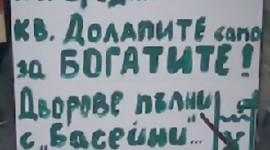 кв. Долапите само
за БОГАТИТЕ!
Дворове пълни
с „Басейни...